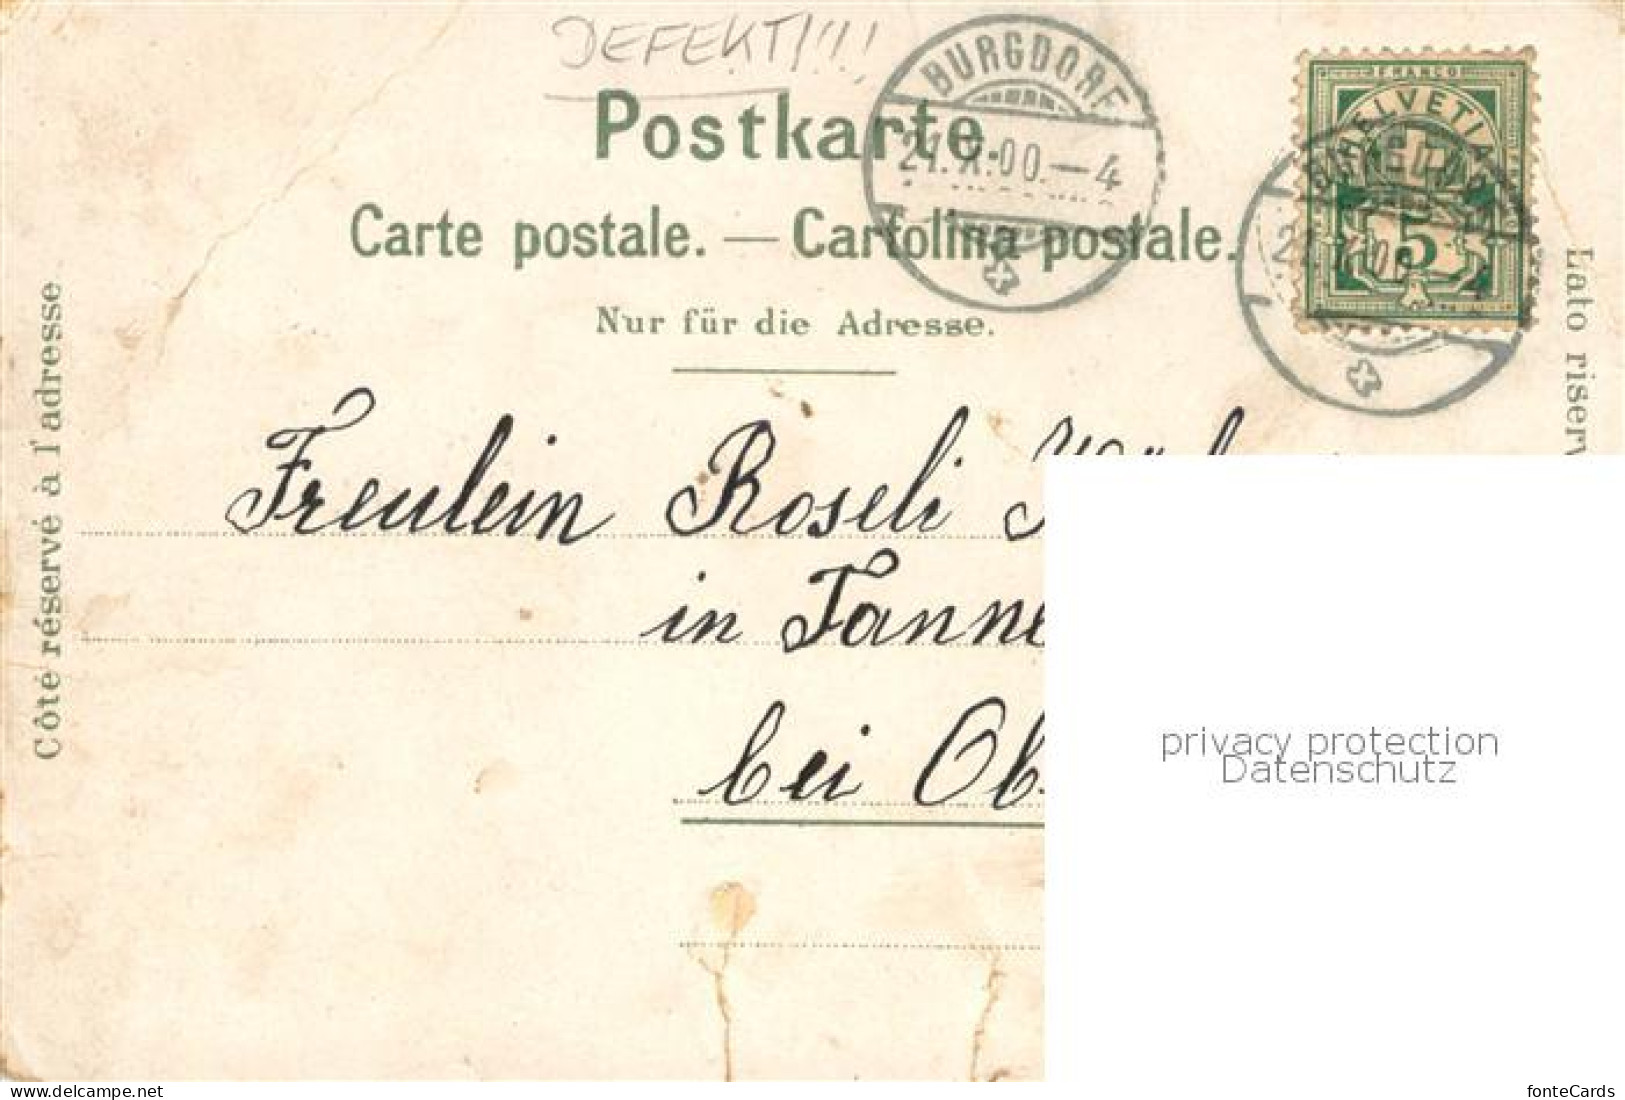 DEFEKT!!!!
BURGDORF
21.X.00.—4
Postkarte.
FRANCO
HELVETIA
5
Carte postale. — Cartolina postale.
Nur für die Adresse.
Côté réservé à l'adresse
Lato riserv
Freulein Roseli
in Tanne
bei Ob
privacy protection
Datenschutz
fonteCards
www.delcampe.net